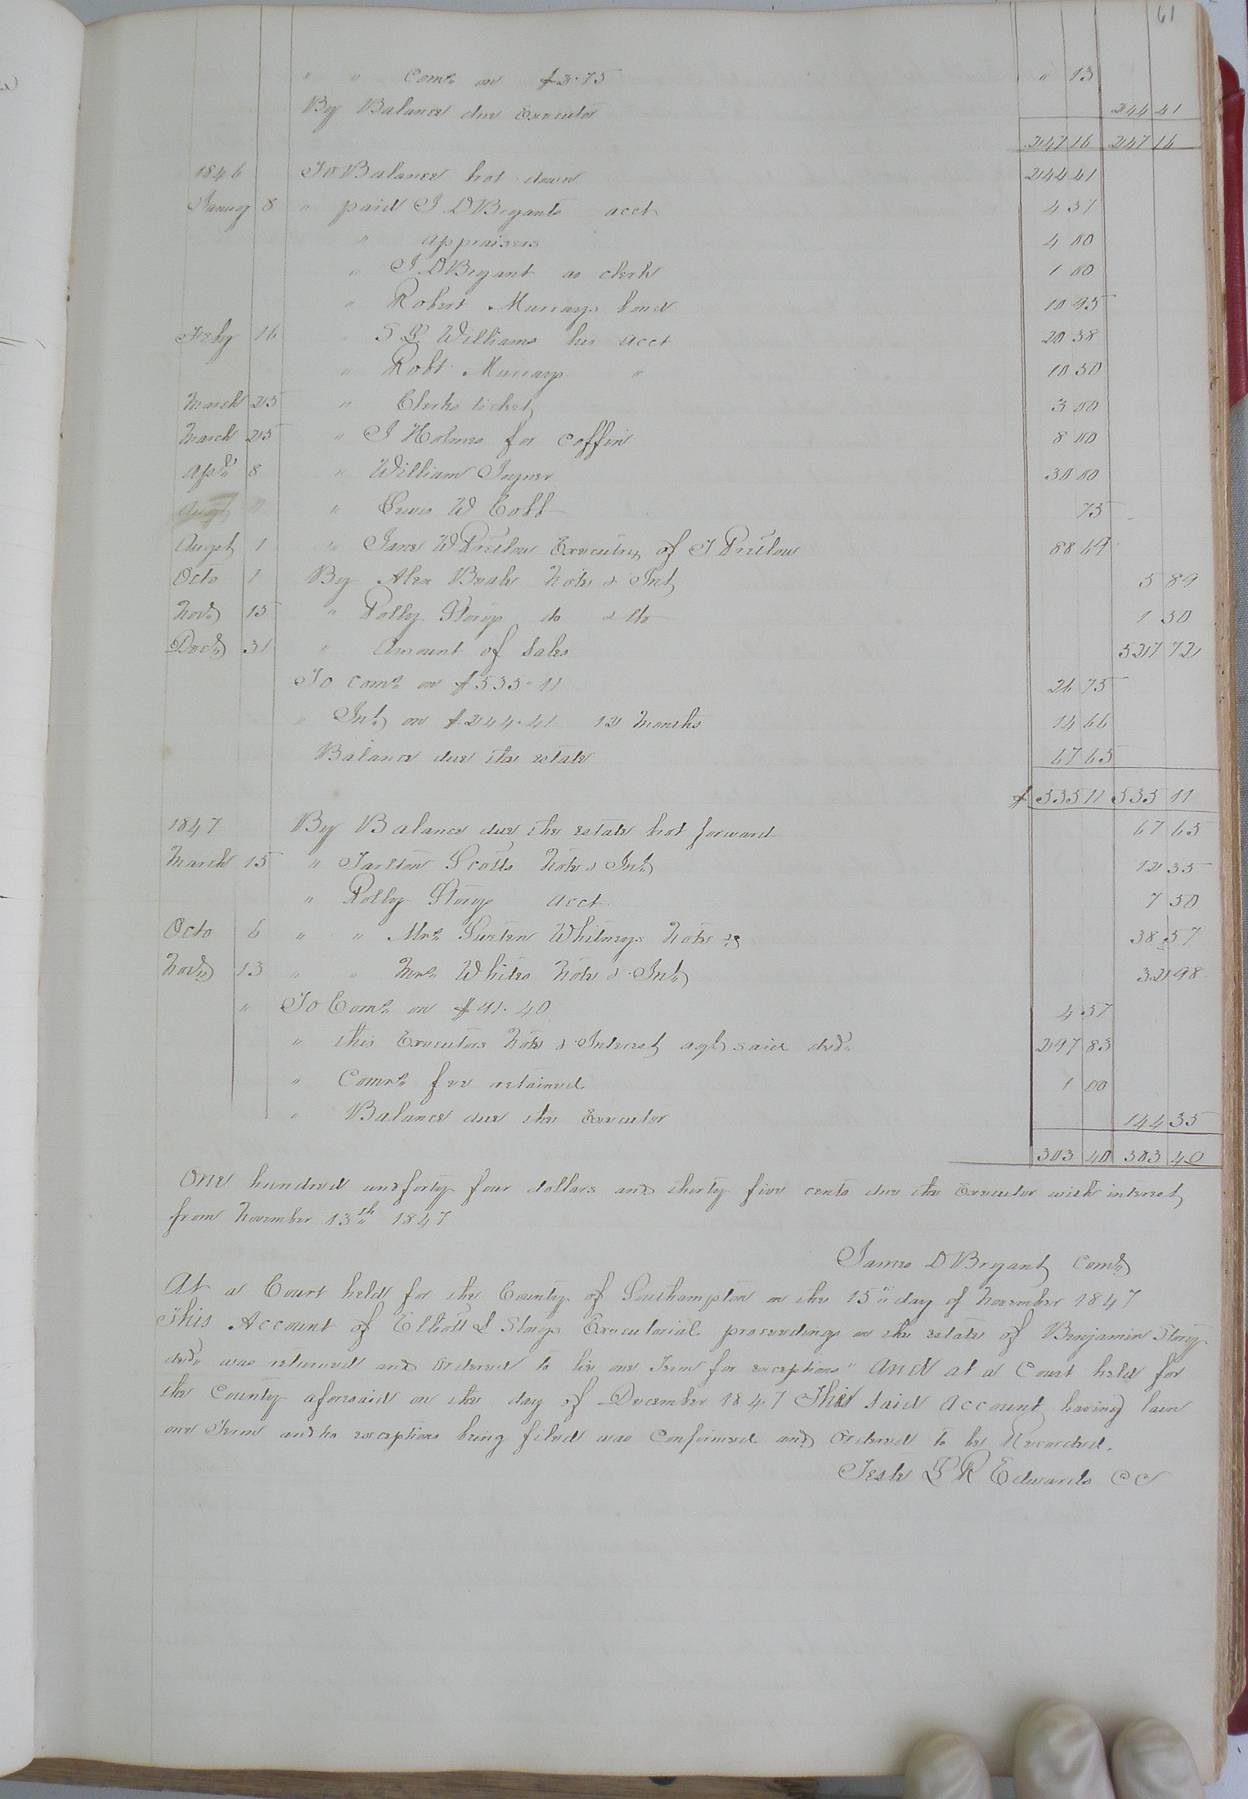 61
" " Comn on $2.75 " 13
By Balance due Executor 244 41
247 16 247 16
1846 To Balance bot down 244 41
January 8 " paid J D Bryants acct 4 37
" appraisers 4 00
" J D Bryant as clerk 1 00
" Robert Murrays bond 10 95
Feby 16 " S B Williams his acct 20 38
" Robt Murray " 10 50
March 25 " Clerks ticket 3 00
March 25 " J Holmes for coffin 8 00
Apl 8 " William Joyner 30 00
" Lewis W Cobb 75
Augst 1 " Jane W Pretlow Executrix of J Pretlow 88 69
Octo 1 By Alex Beals Note & Int 5 89
Novr 15 " Polly Story do & do 1 50
Decr 31 " Amount of Sales 527 72
To comn on $535.11 26 75
" Int on $244.41 12 Months 14 66
Balance due the estate 67 65
$ 535 11 535 11
1847 By Balance due the estate bot forward 67 65
March 15 " Scotts Note & Int 12 35
" Polly Story acct 7 50
Octo 6 " " Mrs Whitneys Note &c 38.57
Novr 13 " " Mrs Whites Note & Int 32 98
" To Comn on $91.40 4 57
" this Executors Note & Interest agt said decd 297 83
" Comrs fee retained 1 00
" Balance due the Executor 144 35
303 40 303 40
One hundred and forty four dollars and thirty five cents due the Executor with interest
from November 13th 1847
James D Bryant Comr
At a Court held for the County of Southampton on the 15" day of November 1847
This Account of Elliott L Storys Executorial proceedings on the estate of Benjamin Story
decd was returned and ordered to lie one Term for exceptions" And at a Court held for
the County aforesaid on the day of December 1847 This said account having lain
one Term and no exceptions being filed was Confirmed and Ordered to be Recorded.
Teste L R Edwards CC